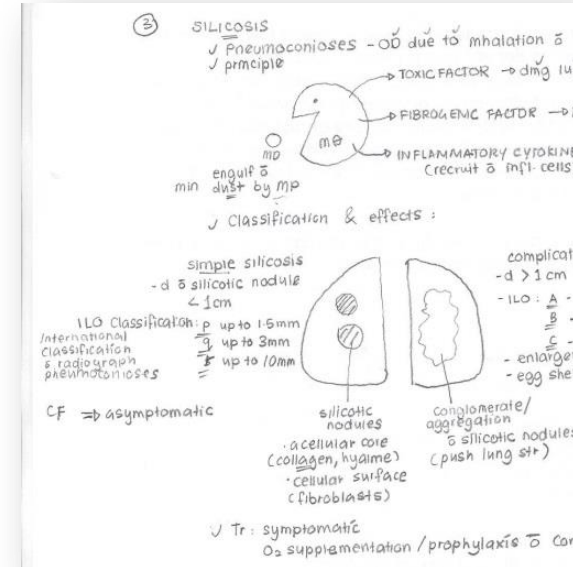 ③ SILICOSIS
✓ Pneumoconioses - OD due to inhalation ō
✓ principle
→ TOXIC FACTOR → dmg lu
→ FIBROGENIC FACTOR →
mΘ
→ INFLAMMATORY CYTOKINE
(recruit ō infl. cells
MD
engulf ō
min dust by mp
✓ Classification & effects :
simple silicosis
- d ō silicotic nodule
< 1cm
ILO Classification: p up to 1.5mm
q up to 3mm
r up to 10mm
International
Classification
ō radiograph
pneumoconioses
CF ⇒ asymptomatic
complicat
- d > 1 cm
- ILO : A -
B -
C -
- enlarge
- egg she
silicotic
nodules
• acellular core
(collagen, hyaline)
• cellular surface
(fibroblasts)
conglomerate/
aggregation
ō silicotic nodules
(push lung str)
✓ Tr : symptomatic
O₂ supplementation / prophylaxis ō con